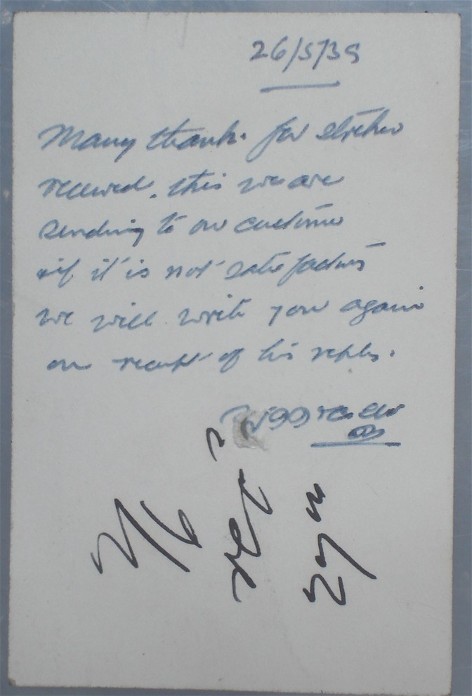 26/5/39
Many thanks for sketches
received, this we are
sending to our customer
if it is not satisfactory
we will write you again
on receipt of his reply.
2/6